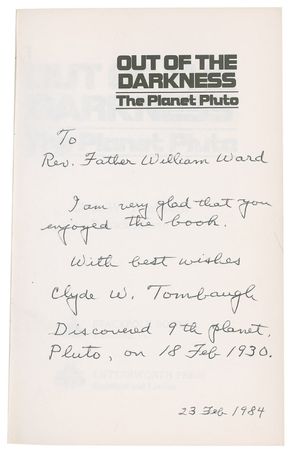 OUT OF THE
DARKNESS
The Planet Pluto
To
Rev. Father William Ward
I am very glad that you
enjoyed the book.
With best wishes
Clyde W. Tombaugh
Discovered 9th planet,
Pluto, on 18 Feb 1930.
23 Feb 1984